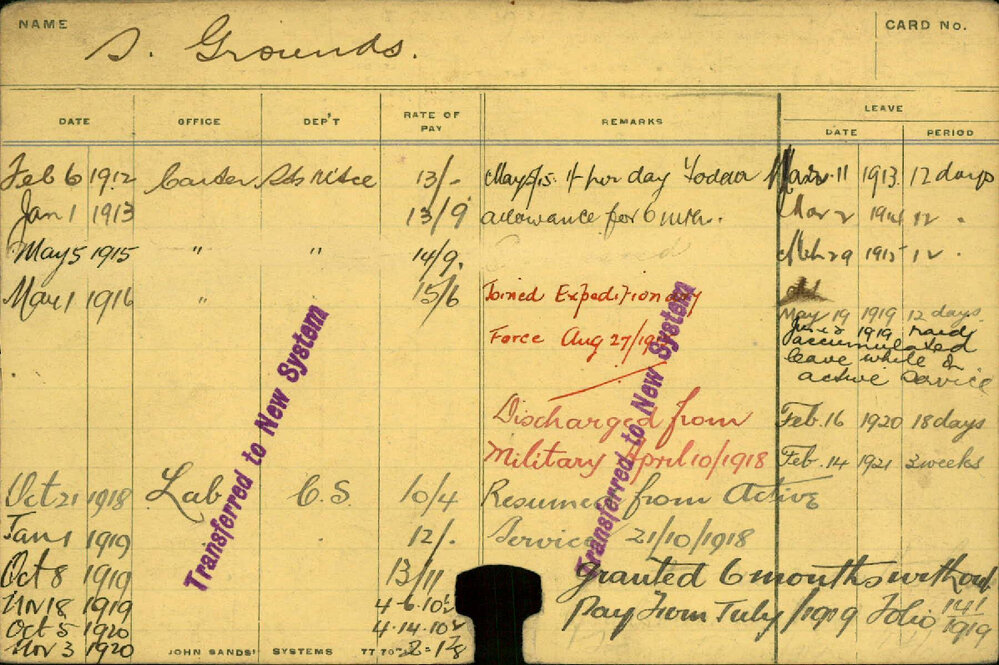 NAME S. Grounds. CARD No.
DATE OFFICE DEP'T RATE OF PAY REMARKS LEAVE
DATE PERIOD
Feb 6 1912 Carter 13/- May 5/15. 1/- per day Fodder Mar 11 1913. 12 days
Jan 1 1913 13/9 allowance for 6 mth. Mar 2 1914 12 "
May 5 1915 " " 14/9. Mch 29 1915 12 "
Mar 1 1916 " 15/6 Joined Expeditionary
May 19 1919 12 days
Force Aug 27/19
June 2 1919 Paid
accumulated
leave while on
active Service
Discharged from Feb. 16 1920 18 days
Military April 10/1918 Feb. 14 1921 3 weeks
Oct 21 1918 Lab C.S 10/4 Resumed from Active
Jan 1 1919 12/- Service 21/10/1918
Oct 8 1919 13/11 Granted 6 months without
Nov 18 1919 4-6-10½ Pay From July /1919 Folio 141/1919
Oct 5 1920 4-14-10½
Nov 3 1920
JOHN SANDS' SYSTEMS
Transferred to New System
Transferred to New System